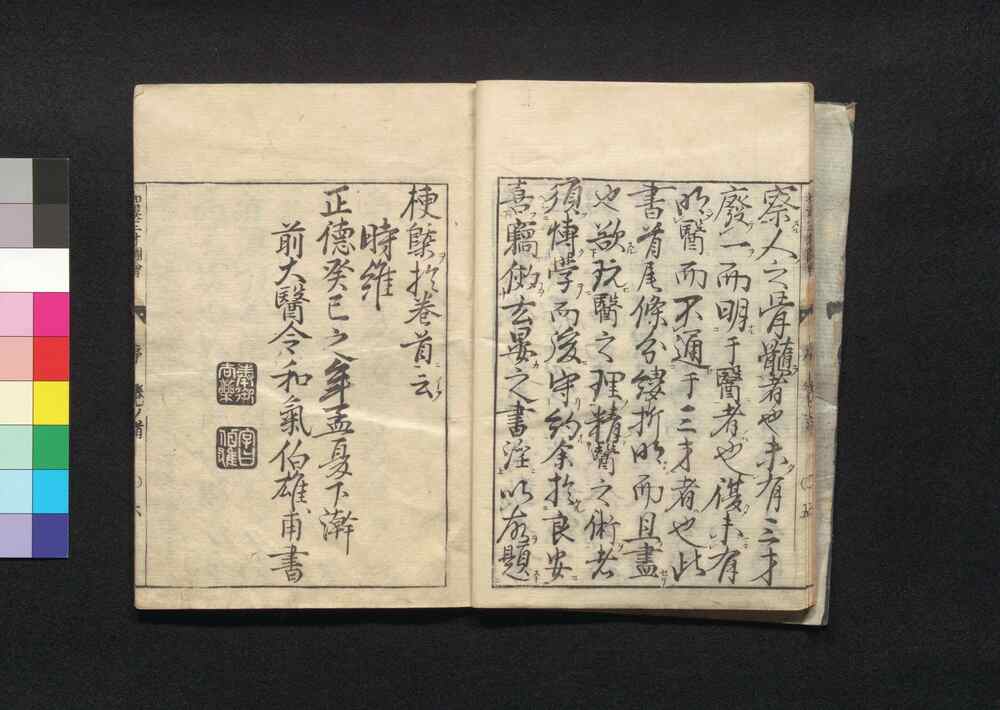 察人之骨髓者也未有三才
廢一而明于醫者也復未有
明醫而不通于三才者也此
書首尾條分縷折明而且盡
也欲玩醫之理精醫之術者
須博學而後守約余於良安
喜竊倣玄晏之書淫以為題
梗槩於卷首云
時維
正德癸巳之年孟夏下澣
前大醫令和氣伯雄甫書
序